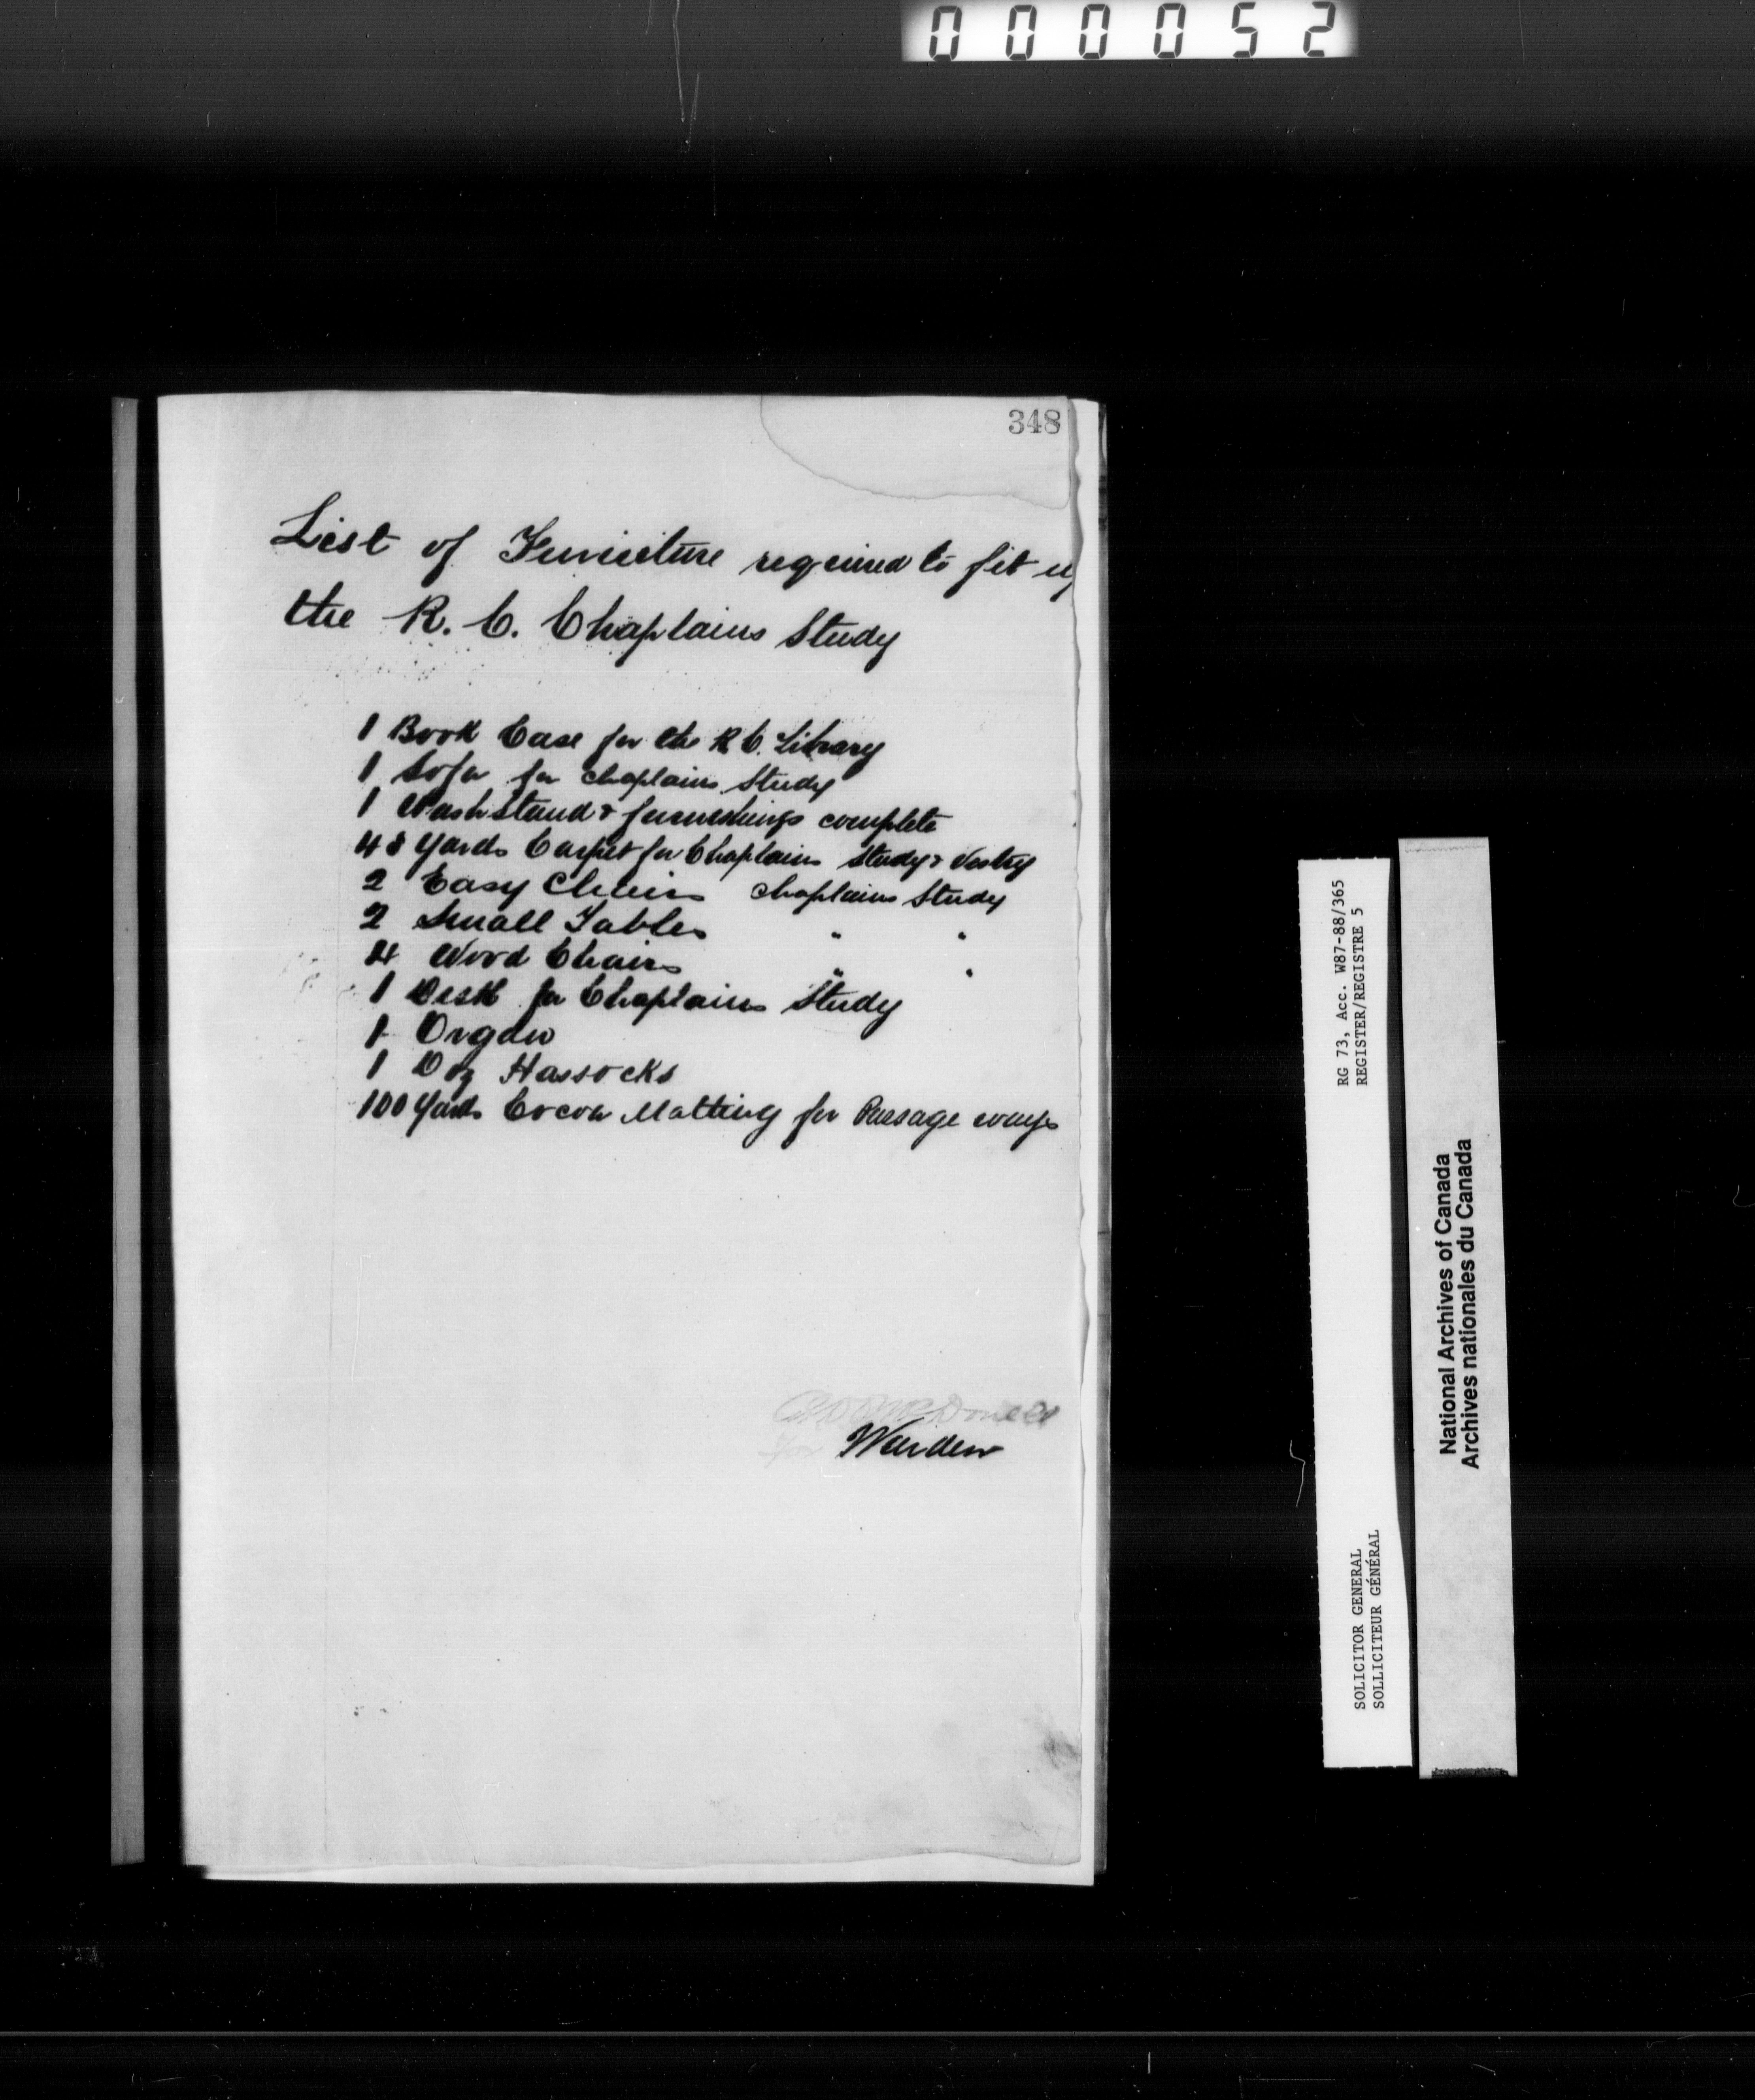 000052
348
List of Furniture required to fit up
the R. C. Chaplains Study
1 Book Case for the R C. Library
1 Sofa for chaplains Study
1 Wash Stand & furnishings complete
48 Yards Carpet for Chaplains Study & Vestry
2 Easy Chairs chaplains Study
2 Small Tables " "
4 Wood Chairs " "
1 Desk for Chaplains Study
1 Organ
1 Doz Hassocks
100 Yards Cocoa Matting for Passage ways
Warden
RG 73, Acc. W87-88/365
REGISTER/REGISTRE 5
SOLICITOR GENERAL
SOLLICITEUR GÉNÉRAL
National Archives of Canada
Archives nationales du Canada